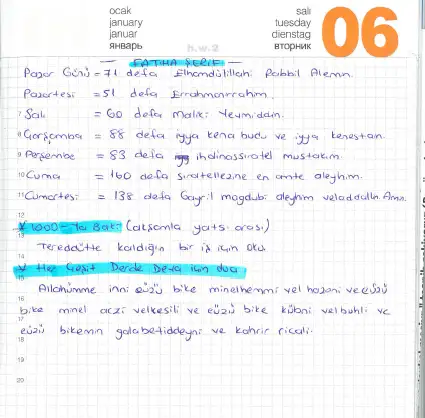 ocak
january
januar
январь
salı
tuesday
dienstag
вторник
06
h.w.2
FATİHA ŞERİF
Pazar Günü = 71 defa Elhamdülillahi Rabbil Alemin.
Pazartesi = 51 defa Errahmanırrahim.
7 Salı = 60 defa Maliki Yevmiddin.
8 Çarşamba = 88 defa iyya kena budu ve iyya kenestain.
9 Perşembe = 83 defa ihdinassıratel mustakim.
10 Cuma = 160 defa sıratellezine en amte aleyhim.
11 Cumartesi = 138 defa Gayril magdubi aleyhim veladdallin. Amin.
12
* 1000 - Ya Baki (akşamla yatsı arası)
13
Tereddütte kaldığın bir iş için Oku
14
* Her Çeşit Derde Deva için dua
15
Allahümme inni eüzü bike minelhemmi vel hazeni ve eüzü
16
bike minel aczi velkesili ve eüzü bike
17
eüzü bikemin galabetiddeyni ve kahrir ricali.
18
19
20